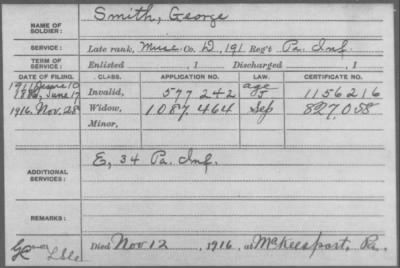 NAME OF SOLDIER: Smith, George
SERVICE: Late rank, Musc Co. D, 191 Reg't Pa. Inf.
TERM OF SERVICE: Enlisted , 1 Discharged , 1
DATE OF FILING. CLASS. APPLICATION NO. LAW. CERTIFICATE NO.
1911 10
188, June 17 Invalid, 577 242 age 1156216
1916. Nov. 28 Widow, 1087.464 Sep 827,058
Minor,
ADDITIONAL SERVICES: E, 34 Pa. Inf.
REMARKS:
Died Nov 12, 1916, at McKeesport, Pa.